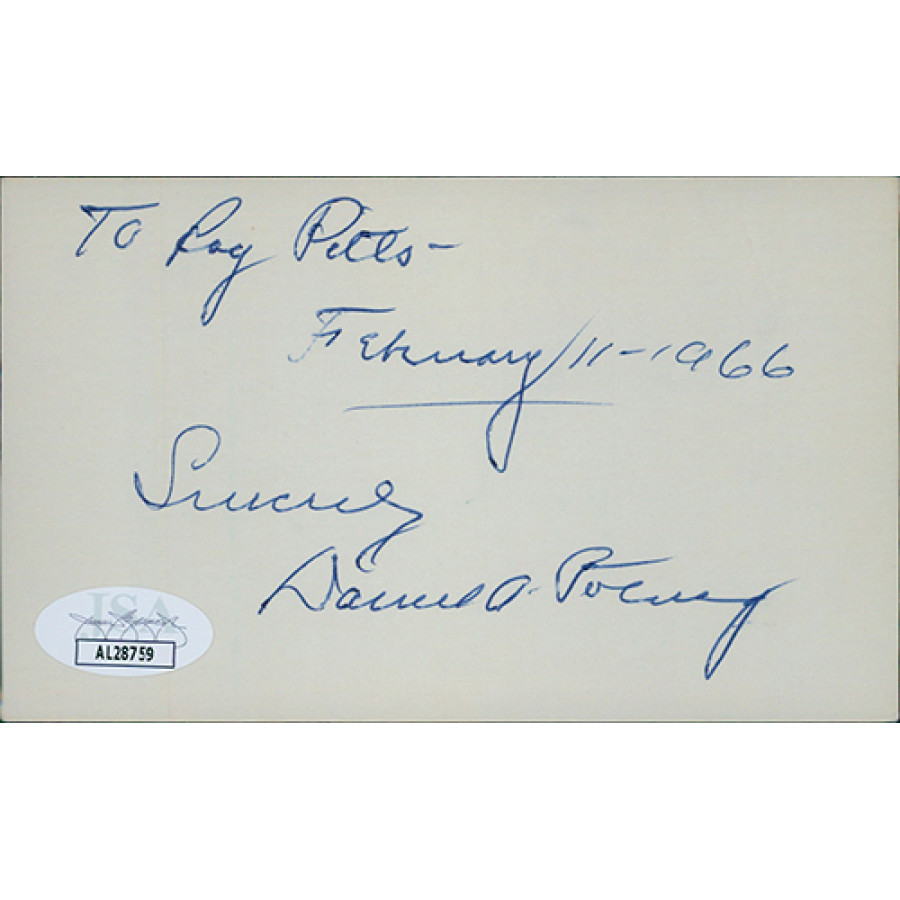 To Roy Pitts-
February/11-1966
Sincerely
Daniel A. Poling
JSA
AL28759